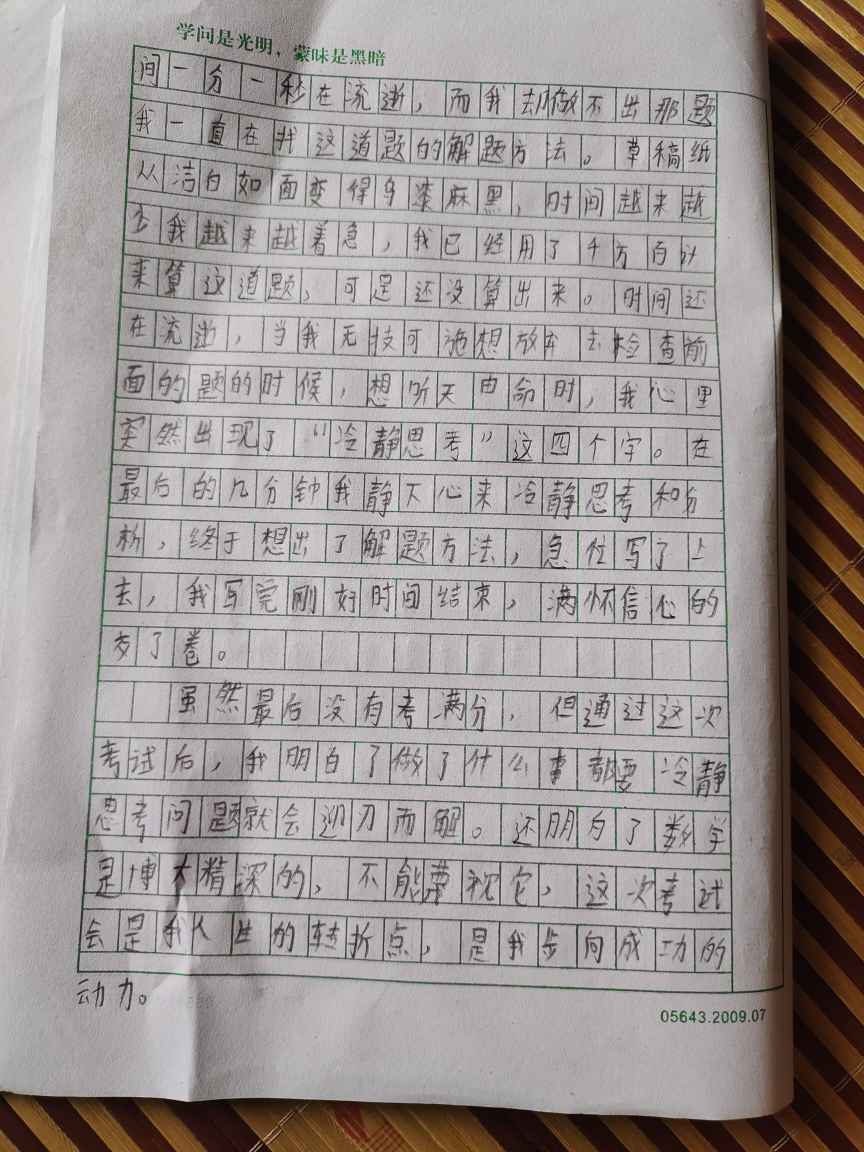 学问是光明，蒙昧是黑暗
间一分一秒在流逝，而我却做不出那题
我一直在找这道题的解题方法。草稿纸
从洁白如面变得乌漆麻黑，时间越来越
少我越来越着急，我已经用了千方百计
来算这道题，可是还没算出来。时间还
在流逝，当我无技可施想放弃去检查前
面的题的时候，想听天由命时，我心里
突然出现了“冷静思考”这四个字。在
最后的几分钟我静下心来冷静思考和分
析，终于想出了解题方法，急忙写了上
去，我写完刚好时间结束，满怀信心的
交了卷。
虽然最后没有考满分，但通过这次
考试后，我明白了做了什么事都要冷静
思考问题就会迎刃而解。还明白了数学
是博大精深的，不能蔑视它，这次考试
会是我人生的转折点，是我步向成功的
动力。
05643.2009.07